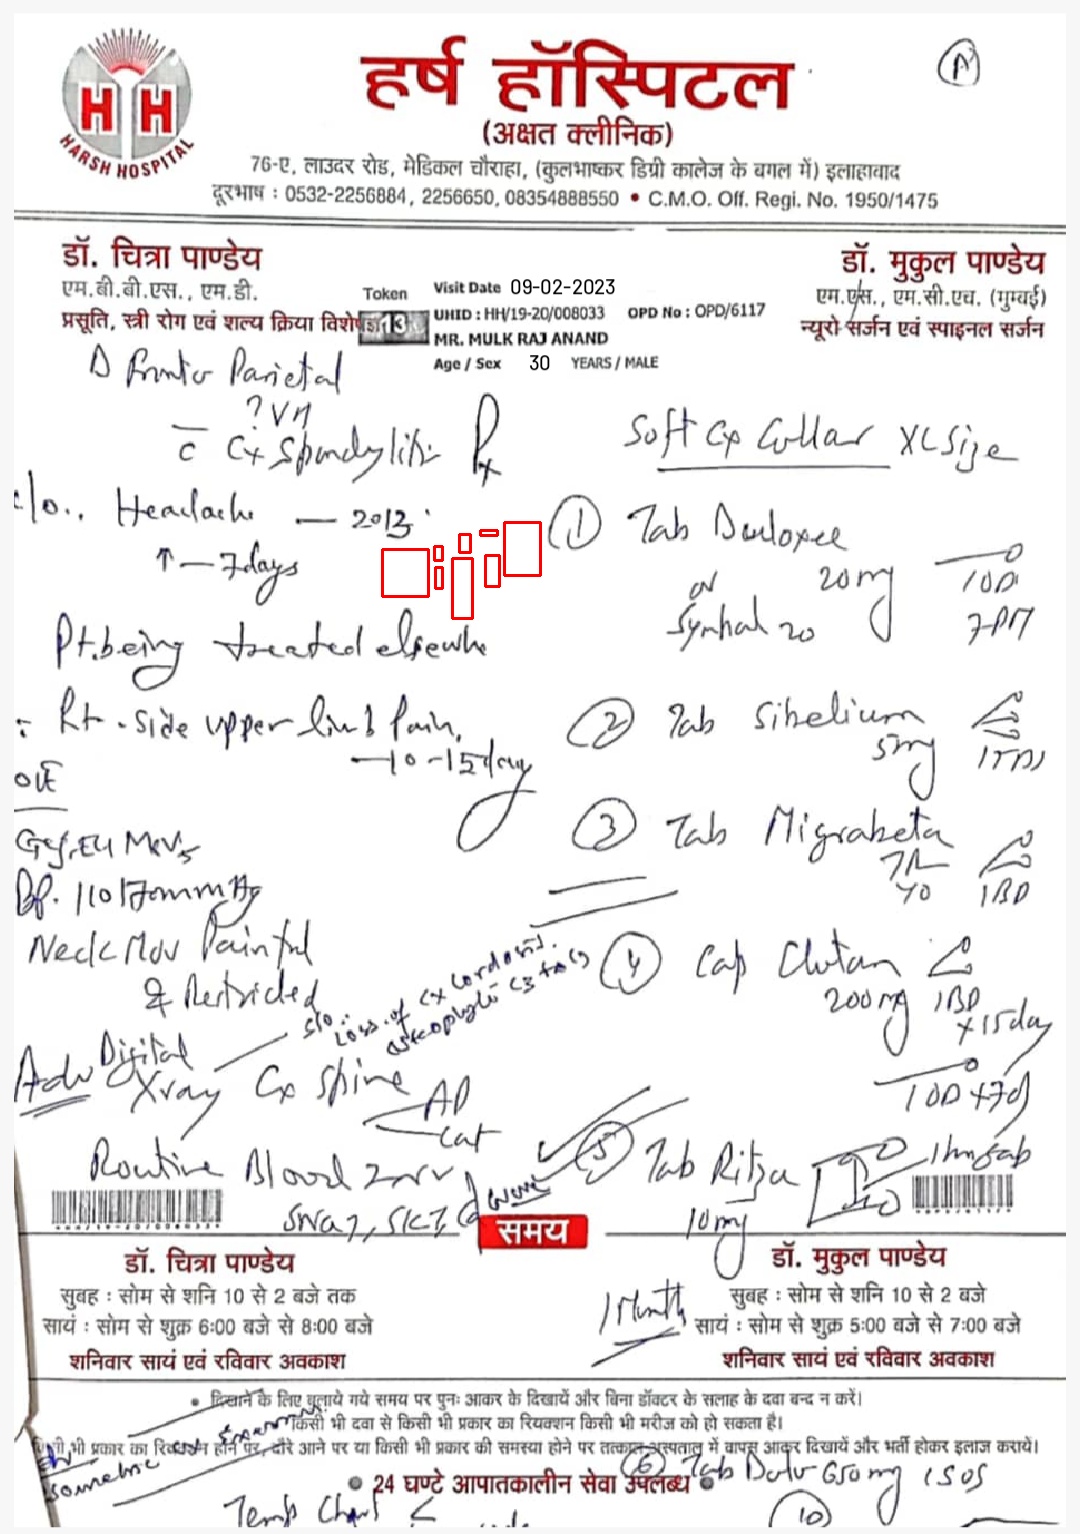 HARSH HOSPITAL
H H
हर्ष हॉस्पिटल
(अक्षत क्लीनिक)
76-ए, लाउदर रोड, मेडिकल चौराहा, (कुलभाष्कर डिग्री कालेज के बगल में) इलाहाबाद
दूरभाष : 0532-2256884, 2256650, 08354888550 • C.M.O. Off. Regi. No. 1950/1475
डॉ. चित्रा पाण्डेय
एम.बी.बी.एस., एम.डी.
प्रसूति, स्त्री रोग एवं शल्य क्रिया
Token
13
Visit Date 09-02-2023
UHID : HH/19-20/008033 OPD No : OPD/6117
MR. MULK RAJ ANAND
Age / Sex 30 YEARS / MALE
डॉ. मुकुल पाण्डेय
एम.एस., एम.सी.एच. (मुम्बई)
न्यूरो सर्जन एवं स्पाइनल सर्जन
Parietal
? VM
c Cx Spondylitis
Headache — 2013
↑ — 7days
Pt. being treated elsewhe
Rt. side upper limb Pain
— 10-15 day
O/E
BP. 110/70mmHg
Neck Mov Painful
& Restricted
S/o. Loss of Cx Lordosis.
osteophytic C3 to C5
Adv Digital
Xray Cx spine AP
Lat
Routine Blood Inv
Rx
Soft Cx Collar XL Size
1 Tab Duloxee
20mg 1OD
or 7PM
Symbal 20
2 Tab Sibelium
5mg 1TDS
3 Tab Migrabeta
TR
40 1BD
4 Cap Clutan
200mg 1BD
x 15day
1OD x 7d
5 Tab Ritza
10mg
1 Month
समय
डॉ. चित्रा पाण्डेय
सुबह : सोम से शनि 10 से 2 बजे तक
सायं : सोम से शुक्र 6:00 बजे से 8:00 बजे
शनिवार सायं एवं रविवार अवकाश
डॉ. मुकुल पाण्डेय
सुबह : सोम से शनि 10 से 2 बजे
सायं : सोम से शुक्र 5:00 बजे से 7:00 बजे
शनिवार सायं एवं रविवार अवकाश
• दिखाने के लिए बुलाये गये समय पर पुनः आकर के दिखायें और बिना डॉक्टर के सलाह के दवा बन्द न करें।
किसी भी दवा से किसी भी प्रकार का रियक्शन किसी भी मरीज को हो सकता है।
भी प्रकार का रियक्शन होने पर, दौरे आने पर या किसी भी प्रकार की समस्या होने पर तत्काल अस्पताल में वापस आकर दिखायें और भर्ती होकर इलाज करायें।
• 24 घण्टे आपातकालीन सेवा उपलब्ध •
6 Tab Dolo 650mg 1SOS
Temp Chart
10